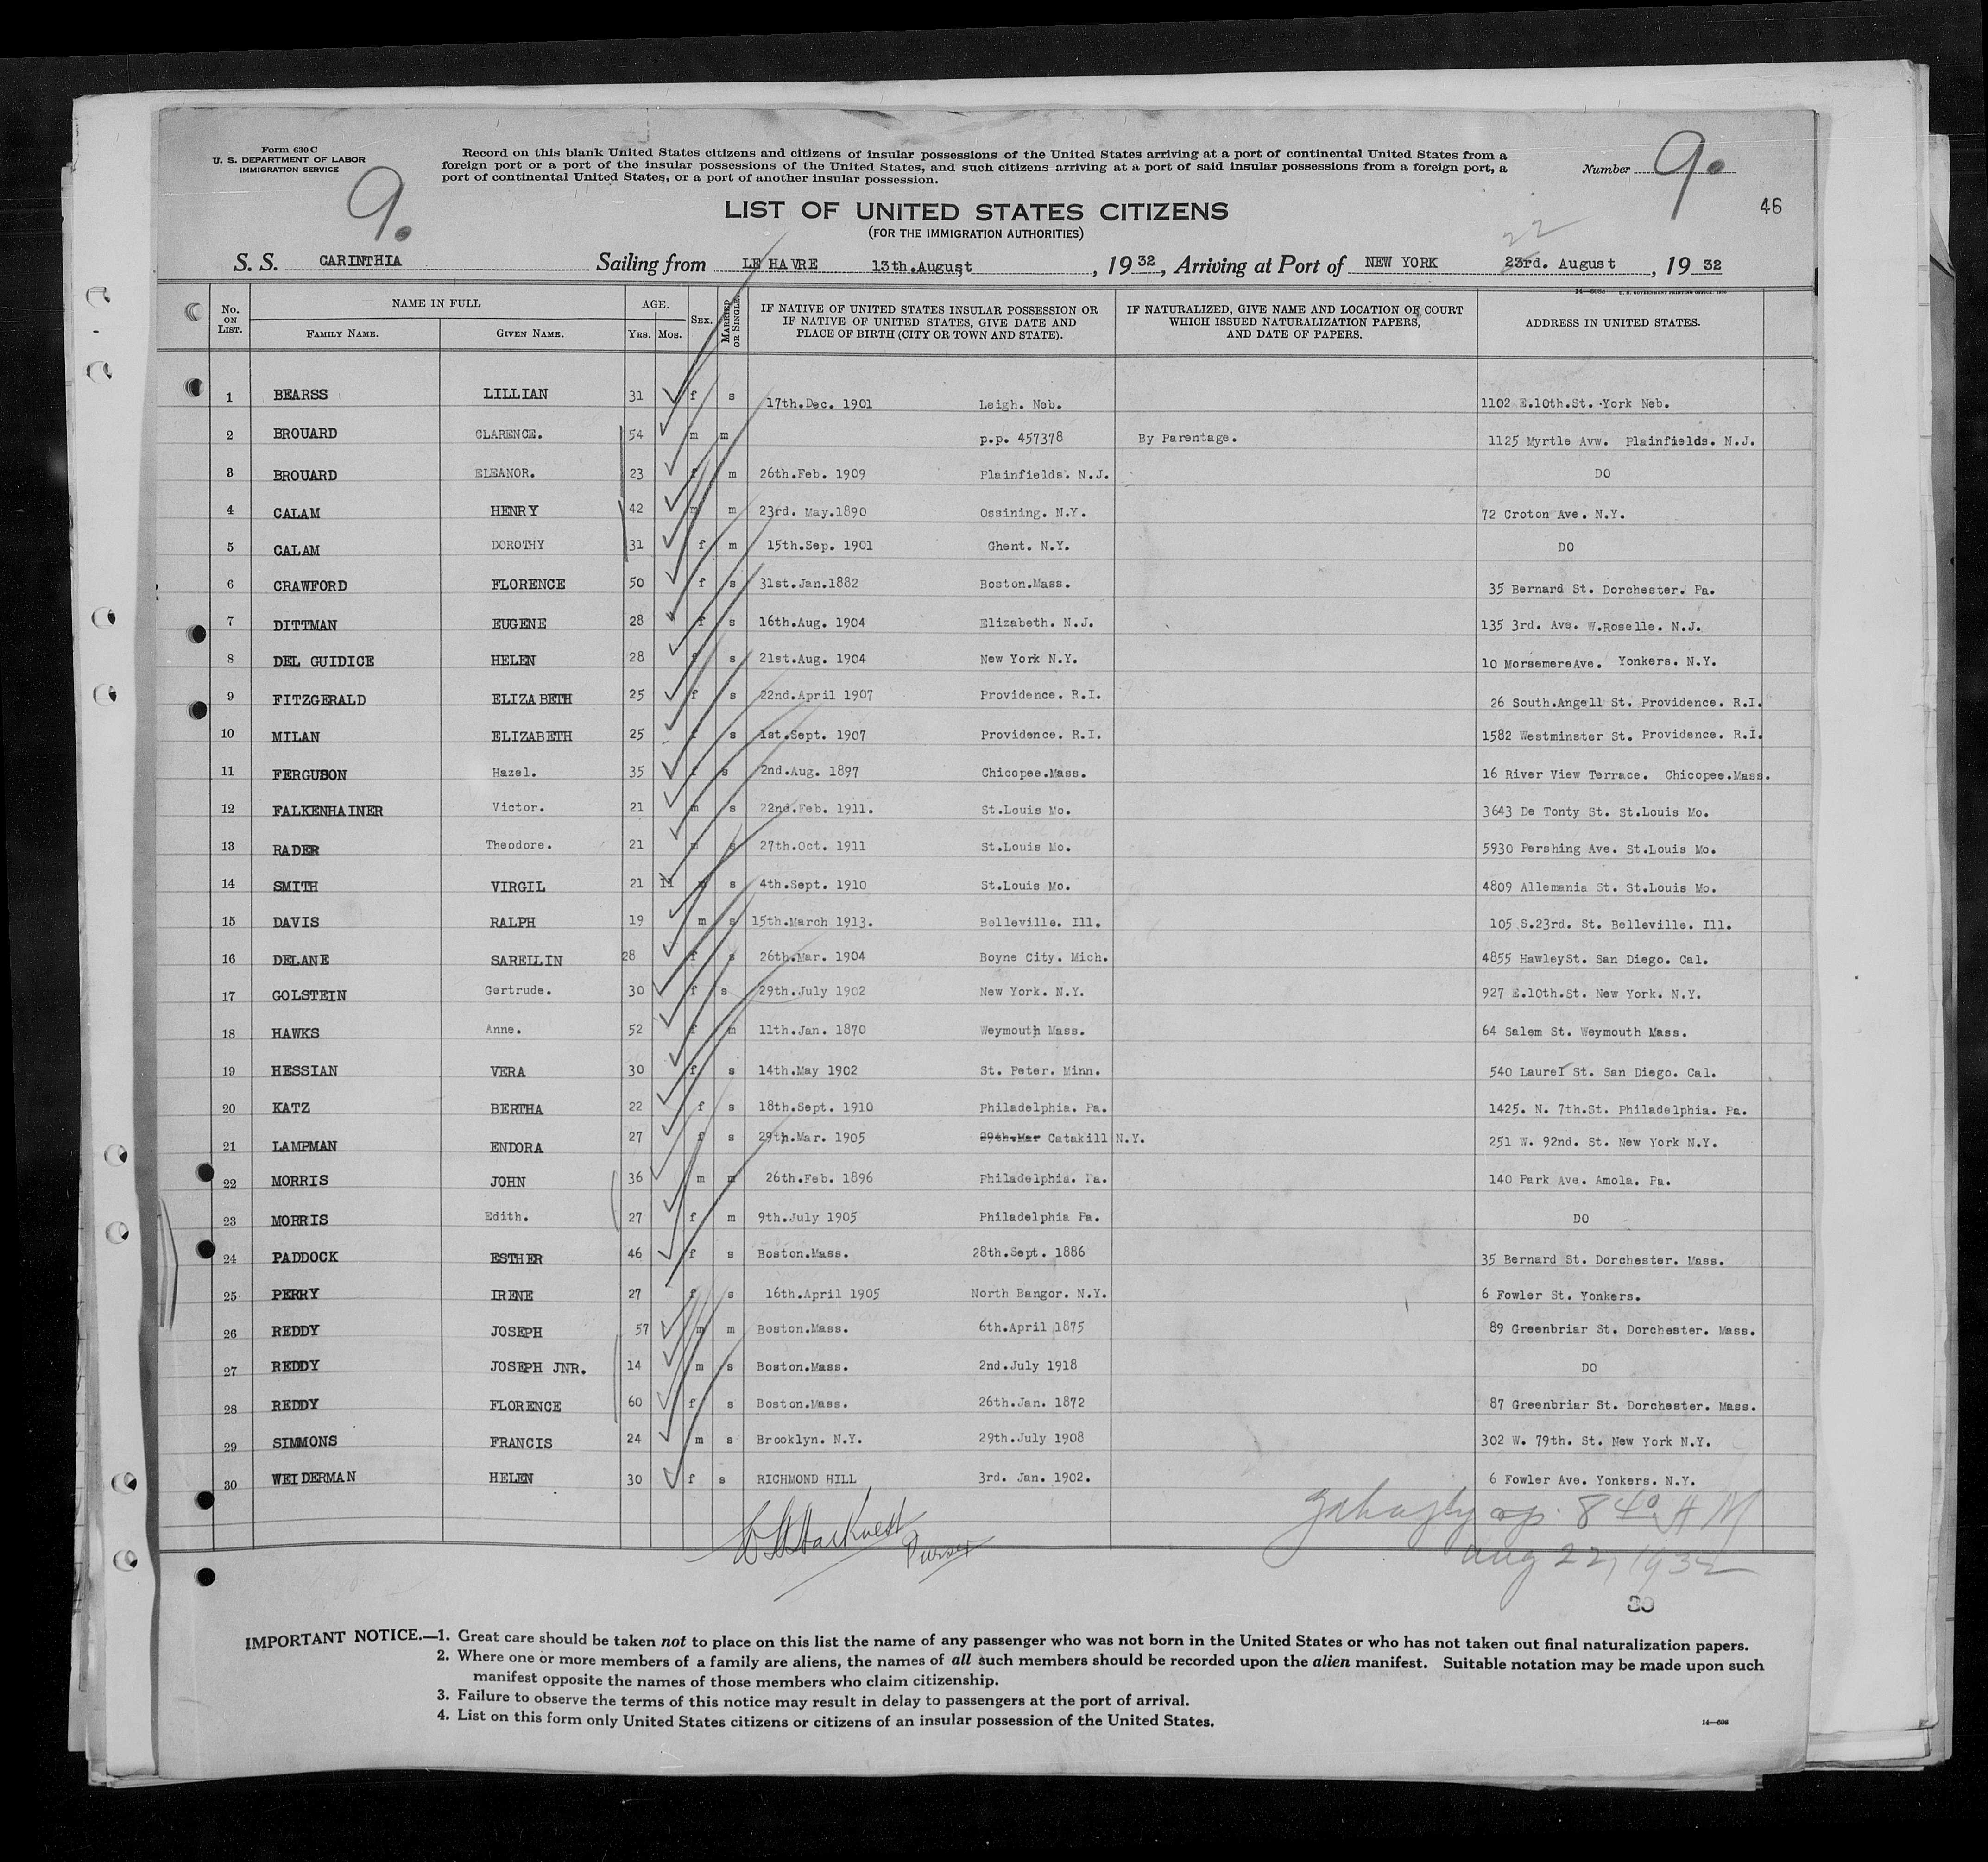 Form 630 C
U. S. DEPARTMENT OF LABOR
IMMIGRATION SERVICE
9.
Record on this blank United States citizens and citizens of insular possessions of the United States arriving at a port of continental United States from a
foreign port or a port of the insular possessions of the United States, and such citizens arriving at a port of said insular possessions from a foreign port, a
port of continental United States, or a port of another insular possession.
Number 9.
46
LIST OF UNITED STATES CITIZENS
(FOR THE IMMIGRATION AUTHORITIES)
22
S. S. CARINTHIA Sailing from LE HAVRE 13th.August , 19 32 , Arriving at Port of NEW YORK 23rd. August , 19 32
No. ON LIST. NAME IN FULL FAMILY NAME. GIVEN NAME. AGE. YRS. MOS. SEX. MARRIED OR SINGLE. IF NATIVE OF UNITED STATES INSULAR POSSESSION OR IF NATIVE OF UNITED STATES, GIVE DATE AND PLACE OF BIRTH (CITY OR TOWN AND STATE). IF NATURALIZED, GIVE NAME AND LOCATION OF COURT WHICH ISSUED NATURALIZATION PAPERS, AND DATE OF PAPERS. ADDRESS IN UNITED STATES.
1 BEARSS LILLIAN 31 f s 17th.Dec. 1901 Leigh. Neb. 1102 E.10th.St. York Neb.
2 BROUARD CLARENCE. 54 m m p.p. 457378 By Parentage. 1125 Myrtle Avw. Plainfields. N.J.
3 BROUARD ELEANOR. 23 f m 26th.Feb. 1909 Plainfields. N.J. DO
4 CALAM HENRY 42 m m 23rd. May.1890 Ossining. N.Y. 72 Croton Ave. N.Y.
5 CALAM DOROTHY 31 f m 15th.Sep. 1901 Ghent. N.Y. DO
6 CRAWFORD FLORENCE 50 f s 31st.Jan.1882 Boston.Mass. 35 Bernard St. Dorchester. Pa.
7 DITTMAN EUGENE 28 f s 16th.Aug. 1904 Elizabeth. N.J. 135 3rd. Ave. W.Roselle. N.J.
8 DEL GUIDICE HELEN 28 f s 21st.Aug. 1904 New York N.Y. 10 MorsemereAve. Yonkers. N.Y.
9 FITZGERALD ELIZABETH 25 f s 22nd.April 1907 Providence. R.I. 26 South.Angell St. Providence. R.I.
10 MILAN ELIZABETH 25 f s 1st.Sept. 1907 Providence. R.I. 1582 Westminster St. Providence. R.I.
11 FERGUSON Hazel. 35 f s 2nd.Aug. 1897 Chicopee.Mass. 16 River View Terrace. Chicopee.Mass.
12 FALKENHAINER Victor. 21 m s 22nd.Feb. 1911. St.Louis Mo. 3643 De Tonty St. St.Louis Mo.
13 RADER Theodore. 21 m s 27th.Oct. 1911 St.Louis Mo. 5930 Pershing Ave. St.Louis Mo.
14 SMITH VIRGIL 21 11 m s 4th.Sept. 1910 St.Louis Mo. 4809 Allemania St. St.Louis Mo.
15 DAVIS RALPH 19 m s 15th.March 1913. Belleville. Ill. 105 S.23rd. St. Belleville. Ill.
16 DELANE SAREILIN 28 f s 26th.Mar. 1904 Boyne City. Mich. 4855 HawleySt. San Diego. Cal.
17 GOLSTEIN Gertrude. 30 f s 29th.July 1902 New York. N.Y. 927 E.10th.St. New York. N.Y.
18 HAWKS Anne. 52 f m 11th.Jan. 1870 Weymouth Mass. 64 Salem St. Weymouth Mass.
19 HESSIAN VERA 30 f s 14th.May 1902 St. Peter. Minn. 540 Laurel St. San Diego. Cal.
20 KATZ BERTHA 22 f s 18th.Sept. 1910 Philadelphia. Pa. 1425. N. 7th.St. Philadelphia. Pa.
21 LAMPMAN ENDORA 27 f s 29th.Mar. 1905 29th.Mar Catakill N.Y. 251 W. 92nd. St. New York N.Y.
22 MORRIS JOHN 36 m m 26th.Feb. 1896 Philadelphia. Pa. 140 Park Ave. Amola. Pa.
23 MORRIS Edith. 27 f m 9th.July 1905 Philadelphia Pa. DO
24 PADDOCK ESTHER 46 f s Boston.Mass. 28th.Sept. 1886 35 Bernard St. Dorchester. Mass.
25 PERRY IRENE 27 f s 16th.April 1905 North Bangor. N.Y. 6 Fowler St. Yonkers.
26 REDDY JOSEPH 57 m m Boston.Mass. 6th.April 1875 89 Greenbriar St. Dorchester. Mass.
27 REDDY JOSEPH JNR. 14 m s Boston.Mass. 2nd.July 1918 DO
28 REDDY FLORENCE 60 f s Boston.Mass. 26th.Jan. 1872 87 Greenbriar St. Dorchester. Mass.
29 SIMMONS FRANCIS 24 m s Brooklyn. N.Y. 29th.July 1908 302 W. 79th. St. New York N.Y.
30 WEIDERMAN HELEN 30 f s RICHMOND HILL 3rd. Jan. 1902. 6 Fowler Ave. Yonkers. N.Y.
Purser
8 40 A M
Aug 22, 1932
30
IMPORTANT NOTICE.—1. Great care should be taken not to place on this list the name of any passenger who was not born in the United States or who has not taken out final naturalization papers.
2. Where one or more members of a family are aliens, the names of all such members should be recorded upon the alien manifest. Suitable notation may be made upon such
manifest opposite the names of those members who claim citizenship.
3. Failure to observe the terms of this notice may result in delay to passengers at the port of arrival.
4. List on this form only United States citizens or citizens of an insular possession of the United States.